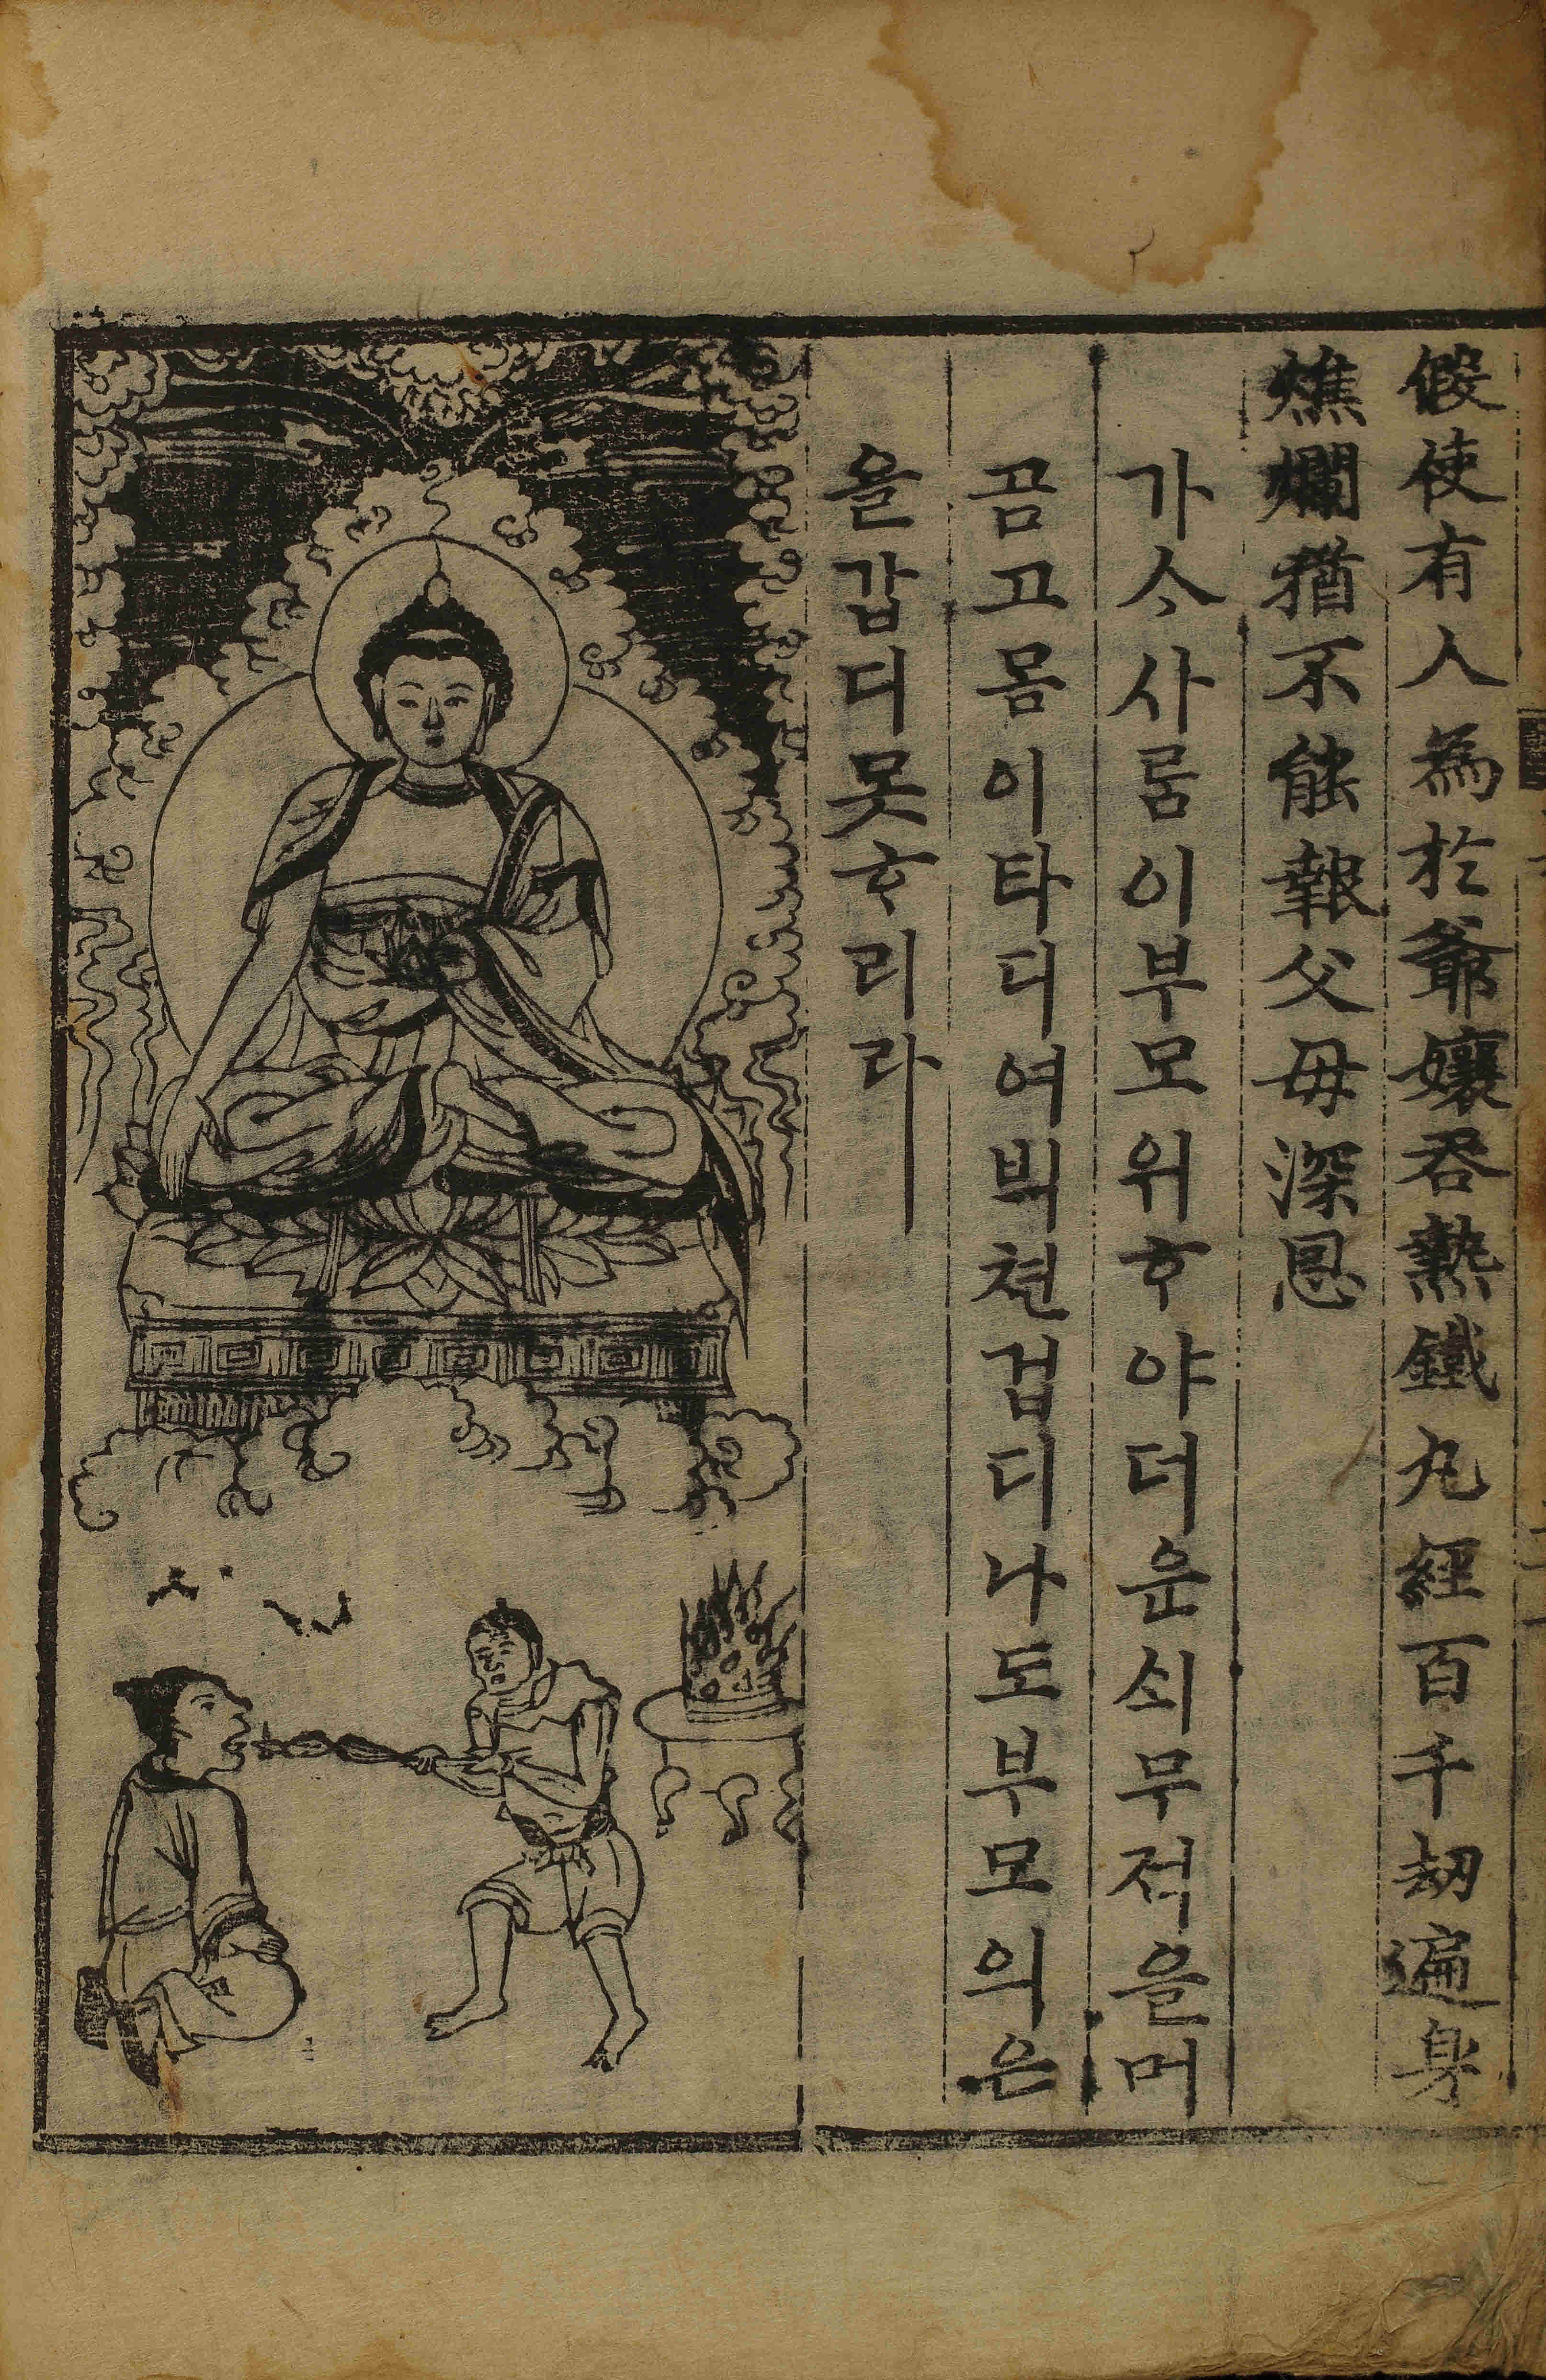 假使有人為於爺孃吞熱鐵丸經百千劫遍身
燋爛猶不能報父母深恩
가ᄉᆞ사ᄅᆞᆷ이부모위ᄒᆞ야더운쇠무적을머
곰고몸이타디여ᄇᆡᆨ쳔겁디나도부모의은
을갑디못ᄒᆞ리라